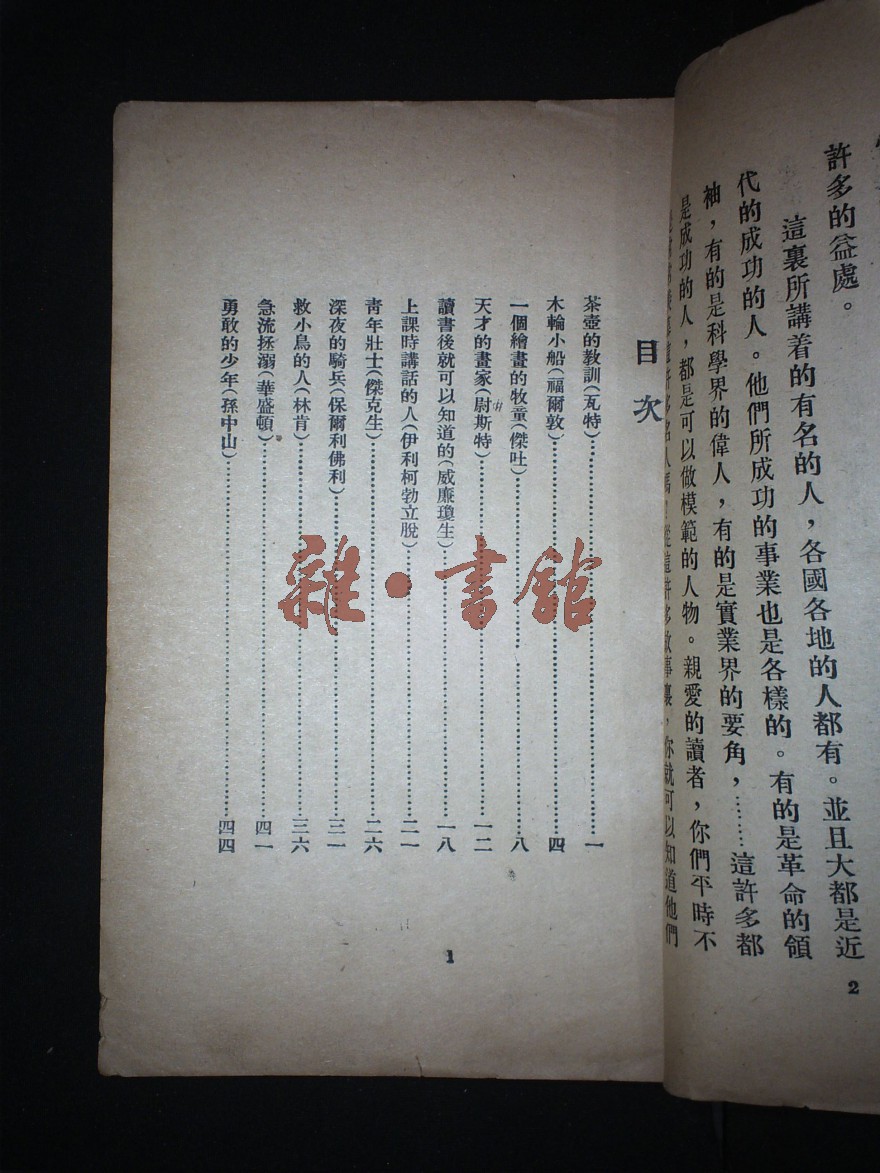 許多的益處。
這裏所講着的有名的人，各國各地的人都有。並且大都是近
代的成功的人。他們所成功的事業也是各樣的。有的是革命的領
袖，有的是科學界的偉人，有的是實業界的要角，……這許多都
是成功的人，都是可以做模範的人物。親愛的讀者，你們平時不
這許多故事裏，你就可以知道他們
2
目次
茶壺的教訓（瓦特）……一
木輪小船（福爾敦）……四
一個繪畫的牧童（傑吐）……八
天才的畫家（尉斯特）……一二
讀書後就可以知道的（威廉瓊生）……一八
上課時講話的人（伊利柯勃立脫）……二一
靑年壯士（傑克生）……二六
深夜的騎兵（保爾利佛利）……三一
救小鳥的人（林肯）……三六
急流拯溺（華盛頓）……四一
勇敢的少年（孫中山）……四四
1
雜·書館